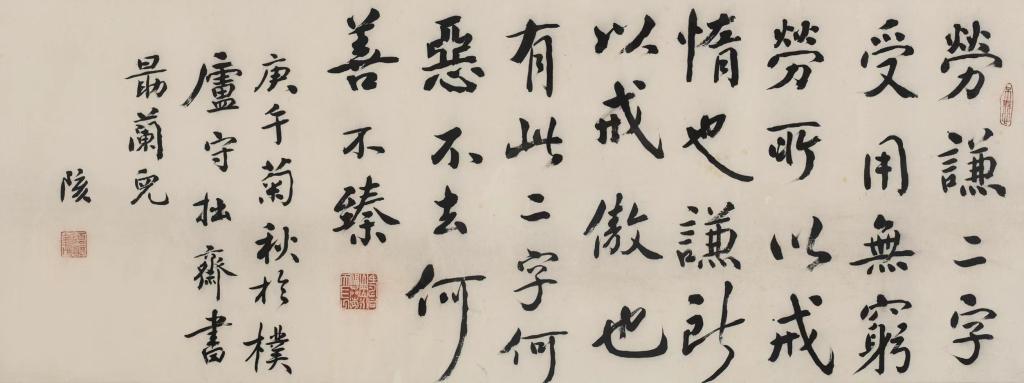 勞謙二字
受用無窮
勞所以戒
惰也謙所
以戒傲也
有此二字何
惡不去何
善不臻
庚午菊秋於樸
廬守拙齋書
勗蘭兒
陔